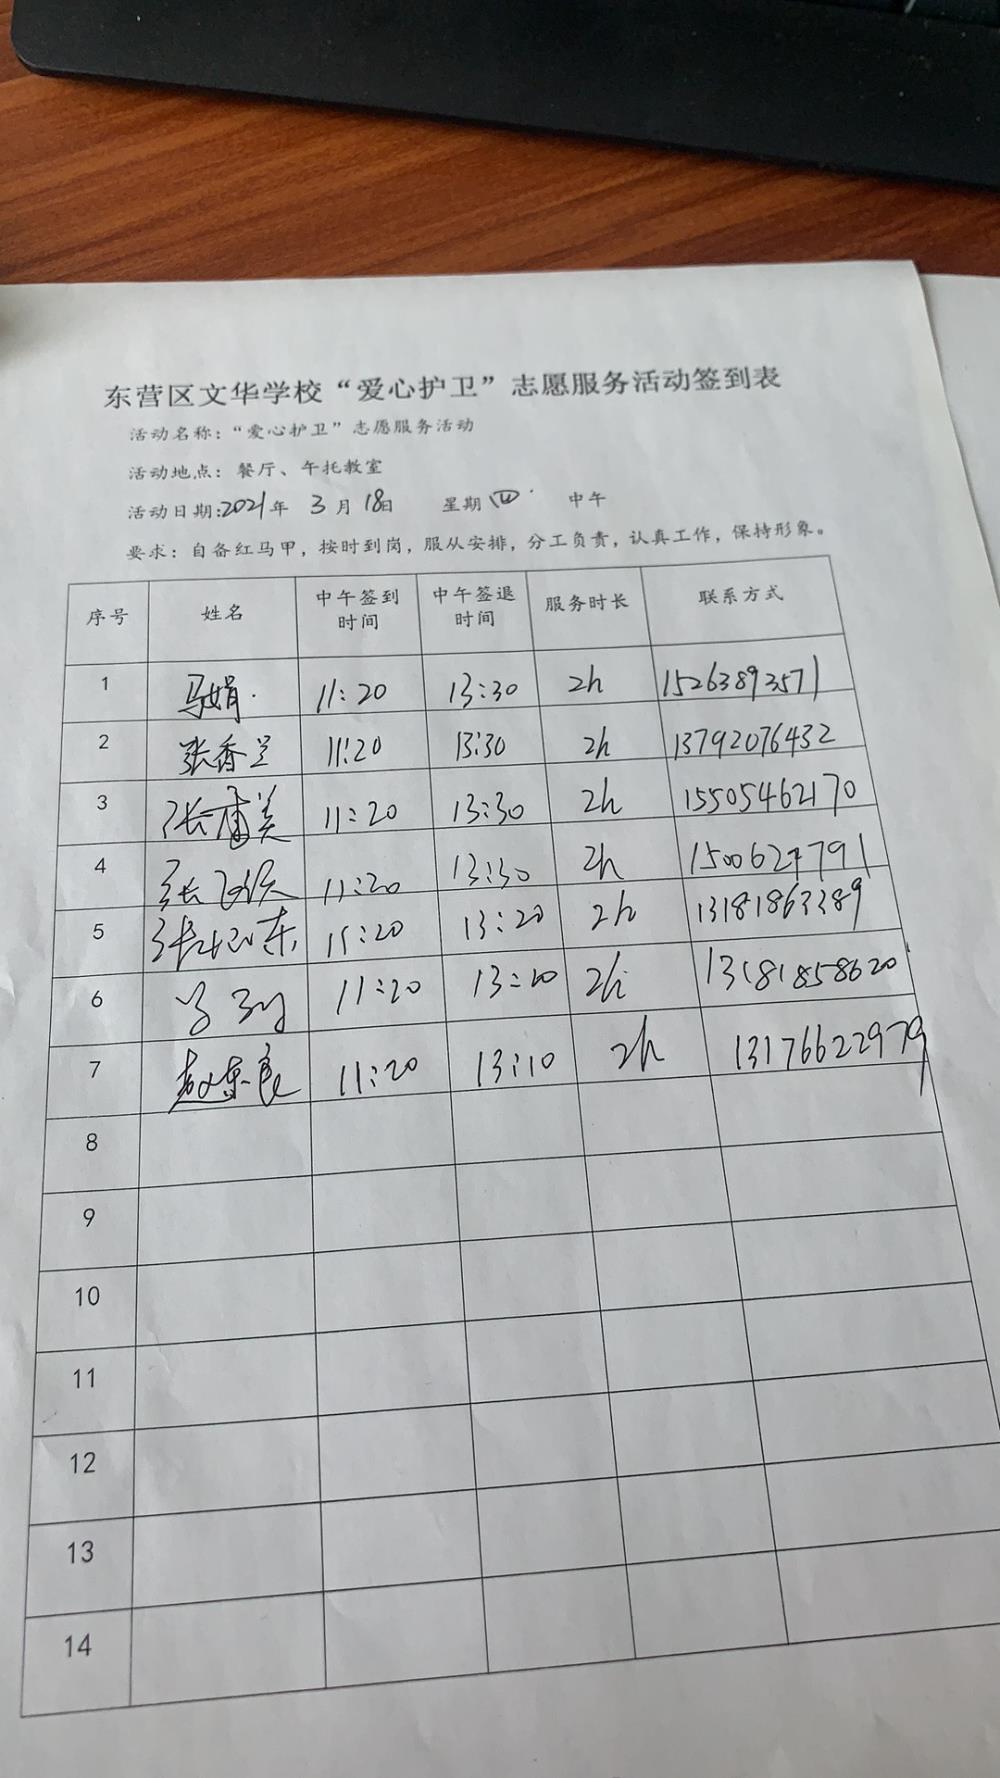 东营区文华学校“爱心护卫”志愿服务活动签到表
活动名称：“爱心护卫”志愿服务活动
活动地点：餐厅、午托教室
活动日期:2021年 3月18日 星期四 中午
要求：自备红马甲，按时到岗，服从安排，分工负责，认真工作，保持形象。
序号 姓名 中午签到时间 中午签退时间 服务时长 联系方式
1 马娟 11:20 13:30 2h 15263893571
2 张香兰 11:20 13:30 2h 13792076432
3 张 美 11:20 13:30 2h 15505462170
4 张 11:20 13:30 2h 15006277791
5 张 东 11:20 13:20 2h 13181863389
6 11:20 13:20 2h 13181858620
7 赵 良 11:20 13:10 2h 13176622979
8
9
10
11
12
13
14